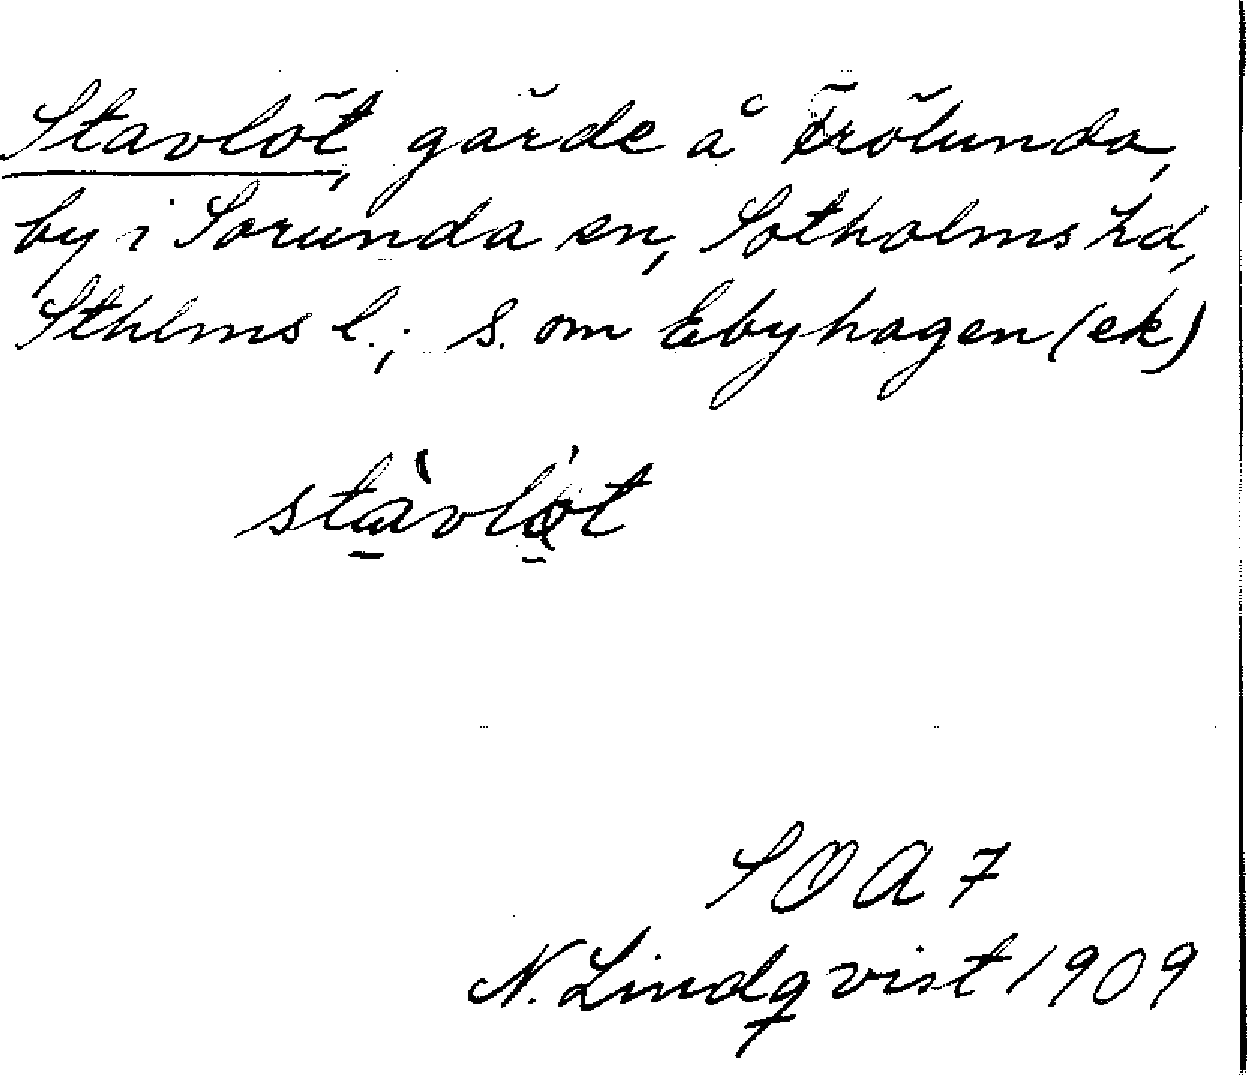 Stavlöt, gärde å Frölunda,
by i Sorunda sn, Sotholms hd,
Sthlms l.; S. om Ebyhagen (ek)
stàvlö́t
SOA 7
N. Lindqvist 1909